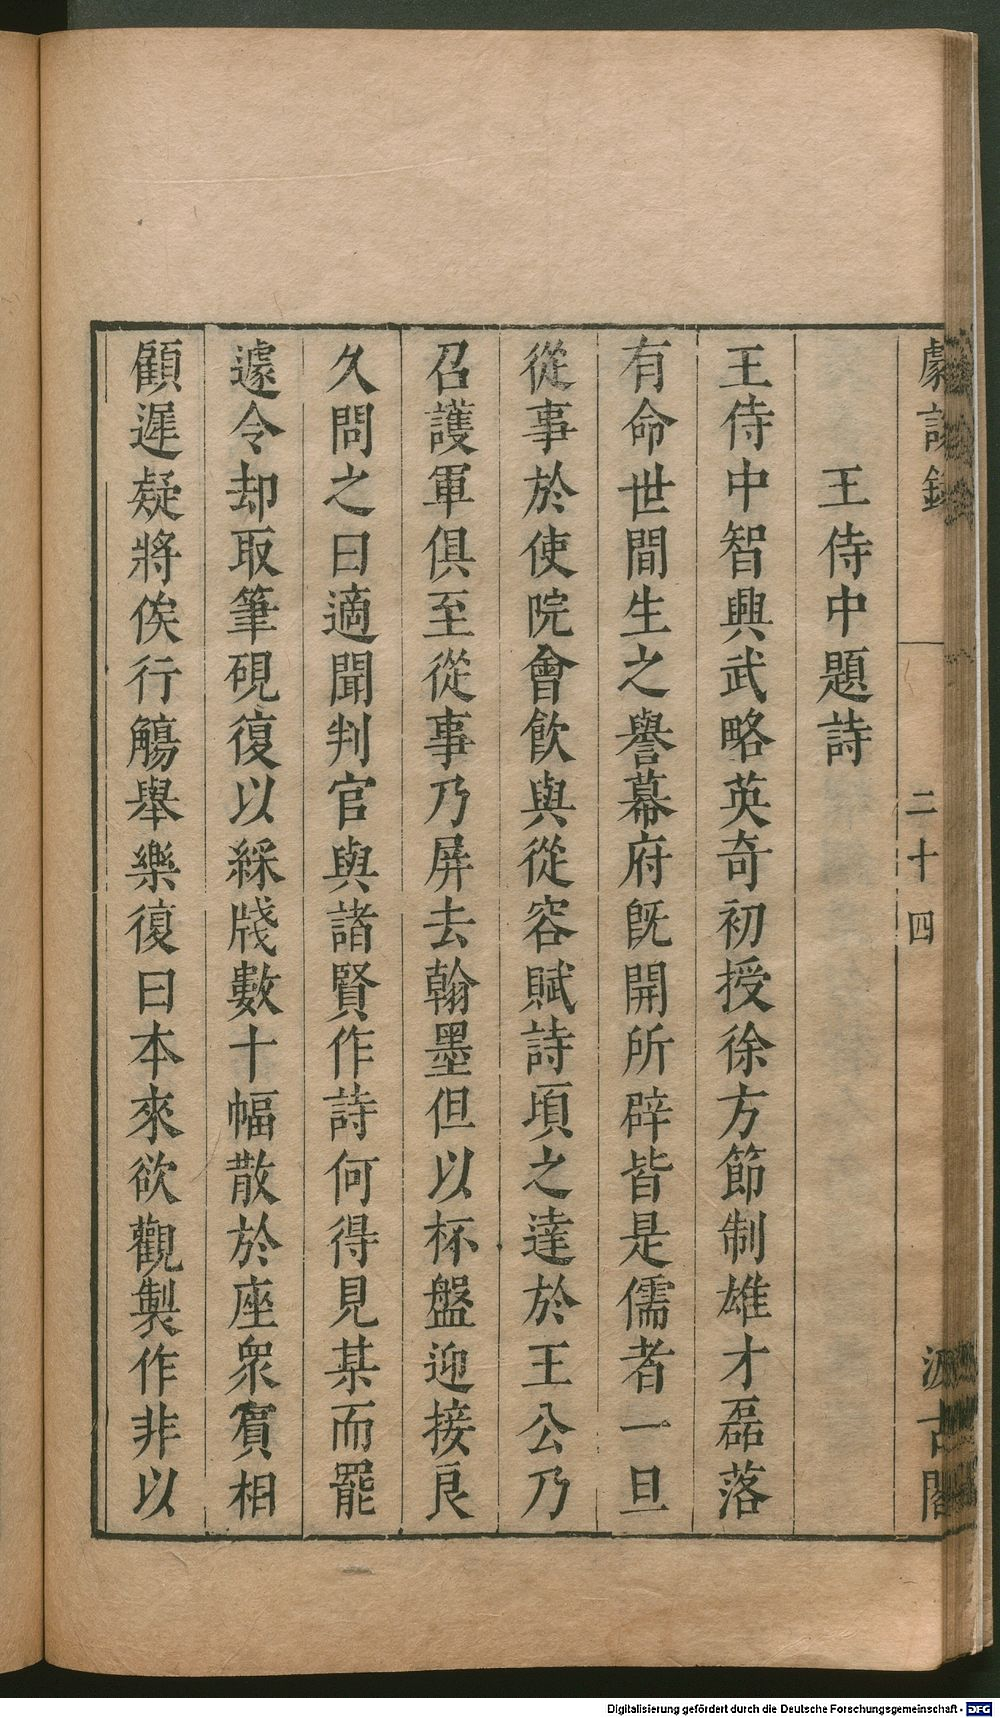 劇談錄
二十四
汲古閣
王侍中題詩
王侍中智興武略英奇初授徐方節制雄才磊落
有命世間生之譽幕府旣開所辟皆是儒者一旦
從事於使院會飮與從容賦詩頃之達於王公乃
召護軍俱至從事乃屛去翰墨但以杯盤迎接良
久問之曰適聞判官與諸賢作詩何得見某而罷
遽令却取筆硯復以綵牋數十幅散於座衆賓相
顧遲疑將俟行觴舉樂復曰本來欲觀製作非以
Digitalisierung gefördert durch die Deutsche Forschungsgemeinschaft - DFG